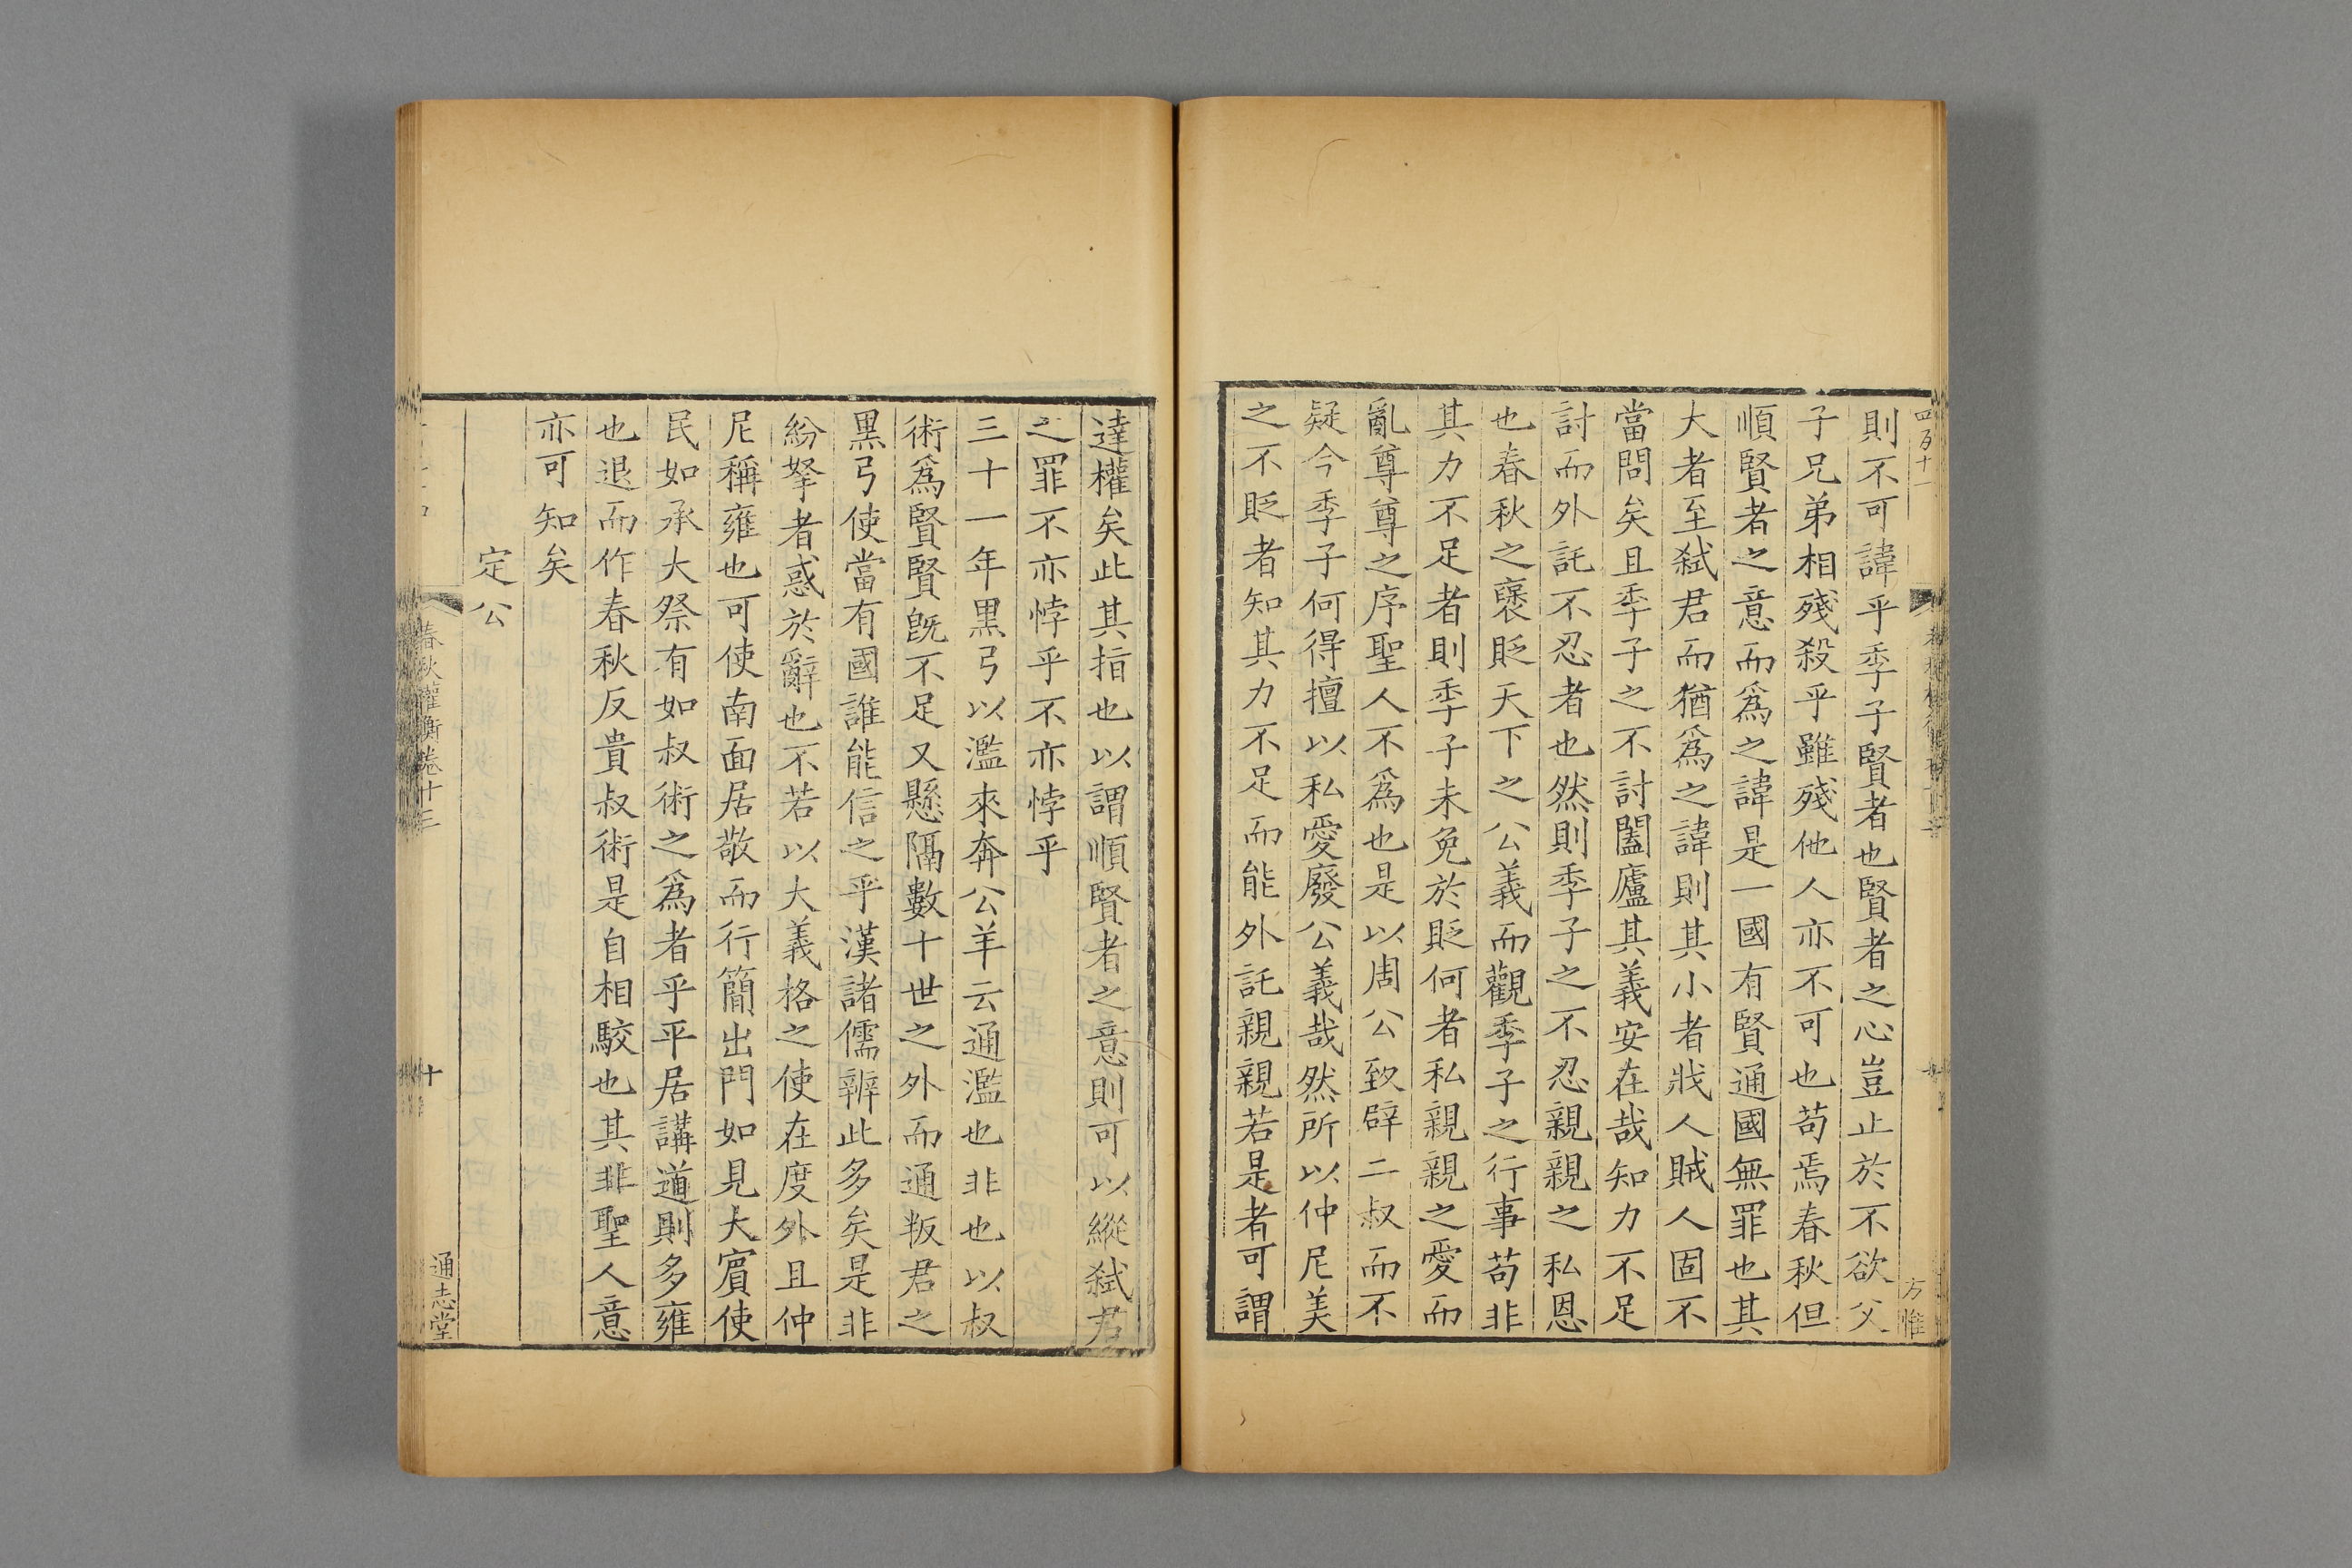 四百十一
方惟
則不可諱乎季子賢者也賢者之心豈止於不欲父
子兄弟相殘殺乎雖殘他人亦不可也苟焉春秋但
順賢者之意而爲之諱是一國有賢通國無罪也其
大者至弑君而猶爲之諱則其小者戕人賊人固不
當問矣且季子之不討闔廬其義安在哉知力不足
討而外託不忍者也然則季子之不忍親親之私恩
也春秋之襃貶天下之公義而觀季子之行事苟非
其力不足者則季子未免於貶何者私親親之愛而
亂尊尊之序聖人不爲也是以周公致辟二叔而不
疑今季子何得擅以私愛廢公義哉然所以仲尼美
之不貶者知其力不足而能外託親親若是者可謂
達權矣此其指也以謂順賢者之意則可以縱弑君
之罪不亦悖乎不亦悖乎
三十一年黑弓以濫來奔公羊云通濫也非也以叔
術爲賢賢旣不足又懸隔數十世之外而通叛君之
黑弓使當有國誰能信之乎漢諸儒辨此多矣是非
紛拏者惑於辭也不若以大義格之使在度外且仲
尼稱雍也可使南面居敬而行簡出門如見大賔使
民如承大祭有如叔術之爲者乎平居講道則多雍
也退而作春秋反貴叔術是自相駮也其非聖人意
亦可知矣
定公
春秋權衡卷十三
十
通志堂